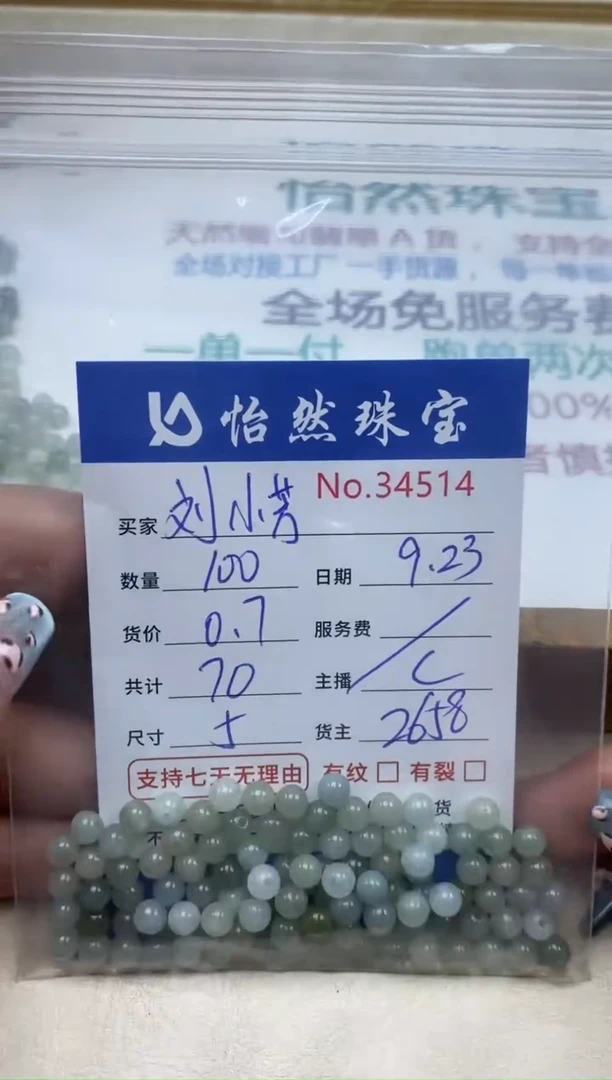 怡然珠宝
全场对接工厂一手货源，
全场免服务费
一单一付
怡然珠宝
No.34514
买家 刘小芳
数量 100 日期 9.23
货价 0.7 服务费 /
共计 70 主播 C
尺寸 5 货主 2658
支持七天无理由 有纹 □ 有裂 □
货
不